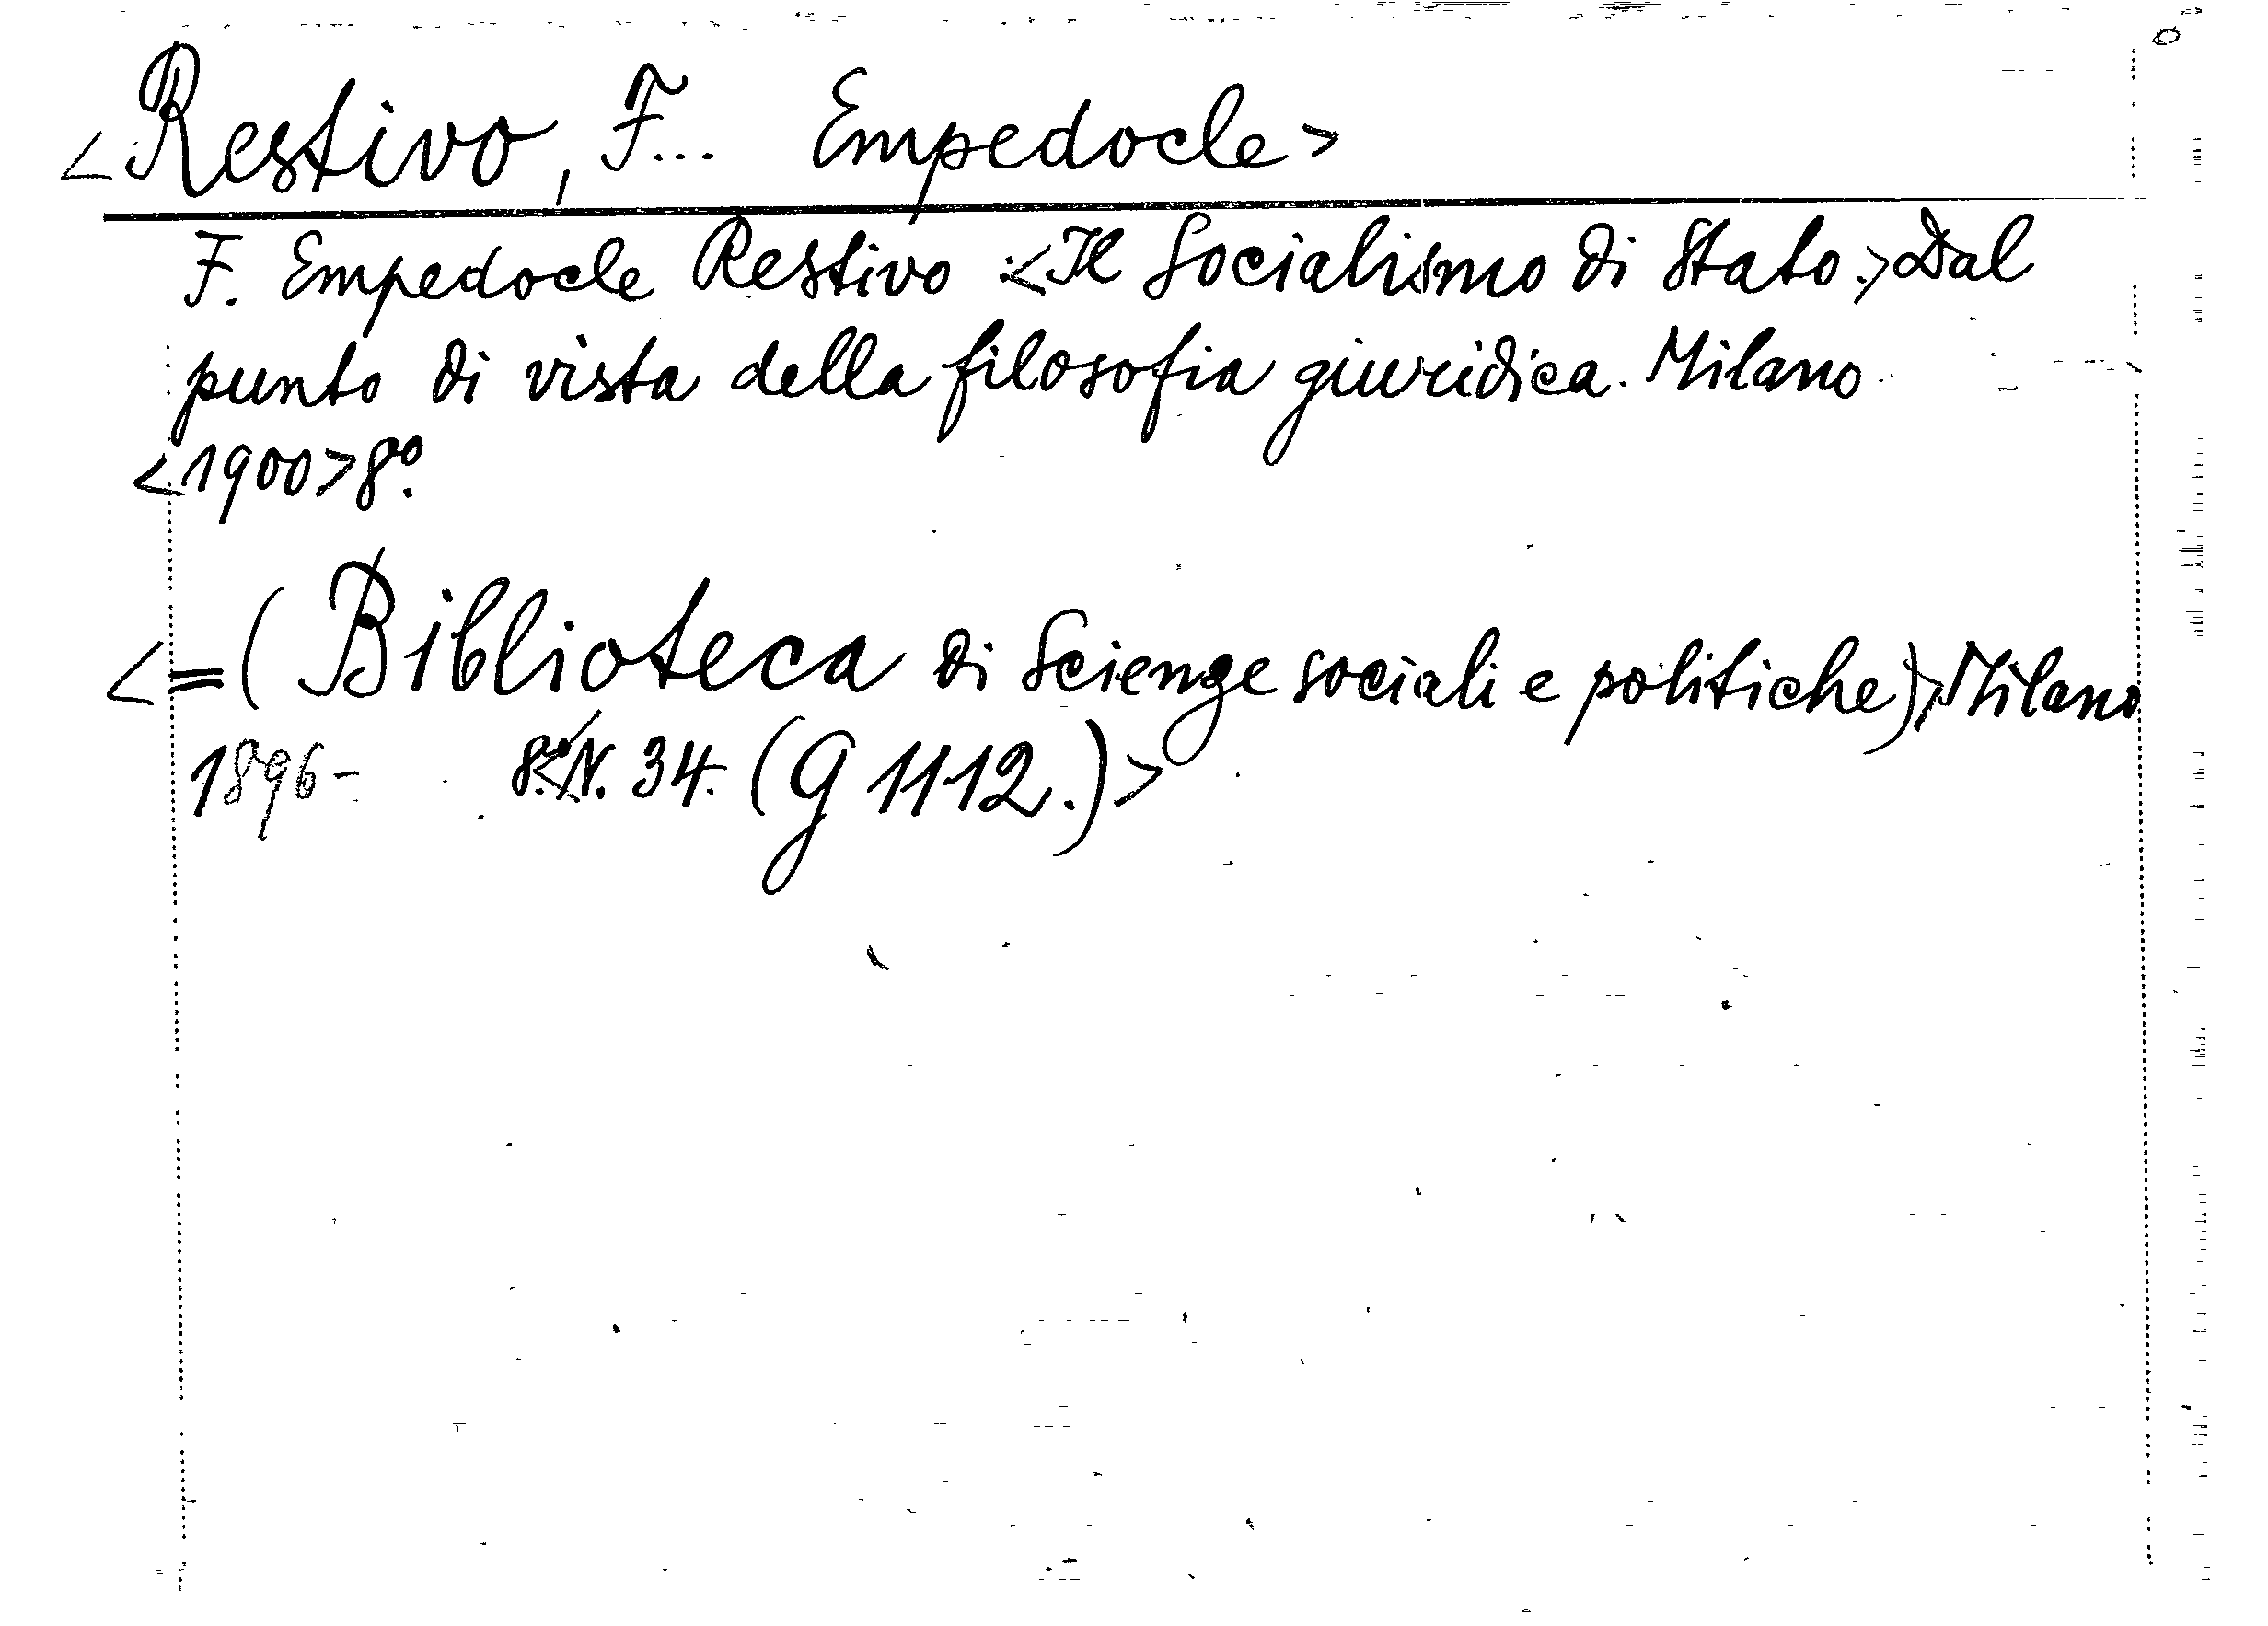 <Restivo, F... Empedocle>
F. Empedocle Restivo :<Il Socialismo di Stato.> Dal
punto di vista della filosofia giuridica. Milano
<1900> 8º.
<=(Biblioteca di Scienze sociali e politiche)> Milano
1896- 8º. <N. 34. (G 1112.)>